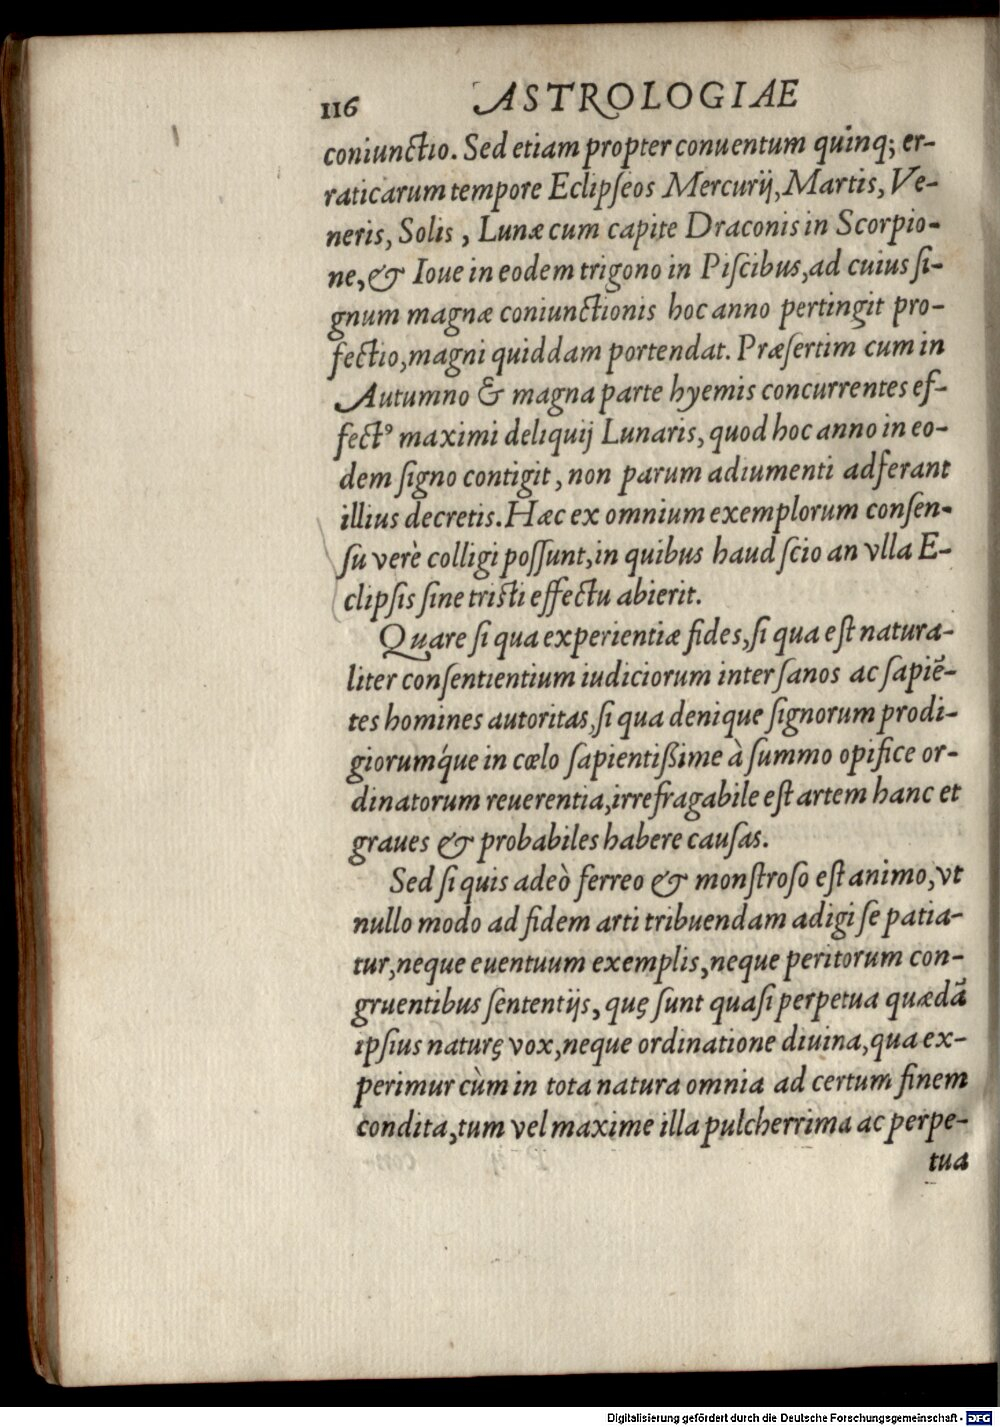 116 ASTROLOGIAE
coniunctio. Sed etiam propter conuentum quinq; er-
raticarum tempore Eclipſeos Mercurij, Martis, Ve-
neris, Solis, Lunæ cum capite Draconis in Scorpio-
ne, & Ioue in eodem trigono in Piſcibus, ad cuius ſi-
gnum magnæ coniunctionis hoc anno pertingit pro-
fectio, magni quiddam portendat. Præſertim cum in
Autumno & magna parte hyemis concurrentes ef-
fectꝰ maximi deliquij Lunaris, quod hoc anno in eo-
dem ſigno contigit, non parum adiumenti adferant
illius decretis. Hæc ex omnium exemplorum conſen-
ſu verè colligi poſſunt, in quibus haud ſcio an vlla E-
clipſis ſine triſti effectu abierit.
Quare ſi qua experientiæ fides, ſi qua eſt natura-
liter conſentientium iudiciorum inter ſanos ac ſapiẽ-
tes homines autoritas, ſi qua denique ſignorum prodi-
giorumq́ue in cœlo ſapientißime à ſummo opifice or-
dinatorum reuerentia, irrefragabile eſt artem hanc et
graues & probabiles habere cauſas.
Sed ſi quis adeò ferreo & monſtroſo eſt animo, vt
nullo modo ad fidem arti tribuendam adigi ſe patia-
tur, neque euentuum exemplis, neque peritorum con-
gruentibus ſententijs, quę ſunt quaſi perpetua quædã
ipſius naturę vox, neque ordinatione diuina, qua ex-
perimur cùm in tota natura omnia ad certum finem
condita, tum vel maxime illa pulcherrima ac perpe-
tua
Digitalisierung gefördert durch die Deutsche Forschungsgemeinschaft - DFG